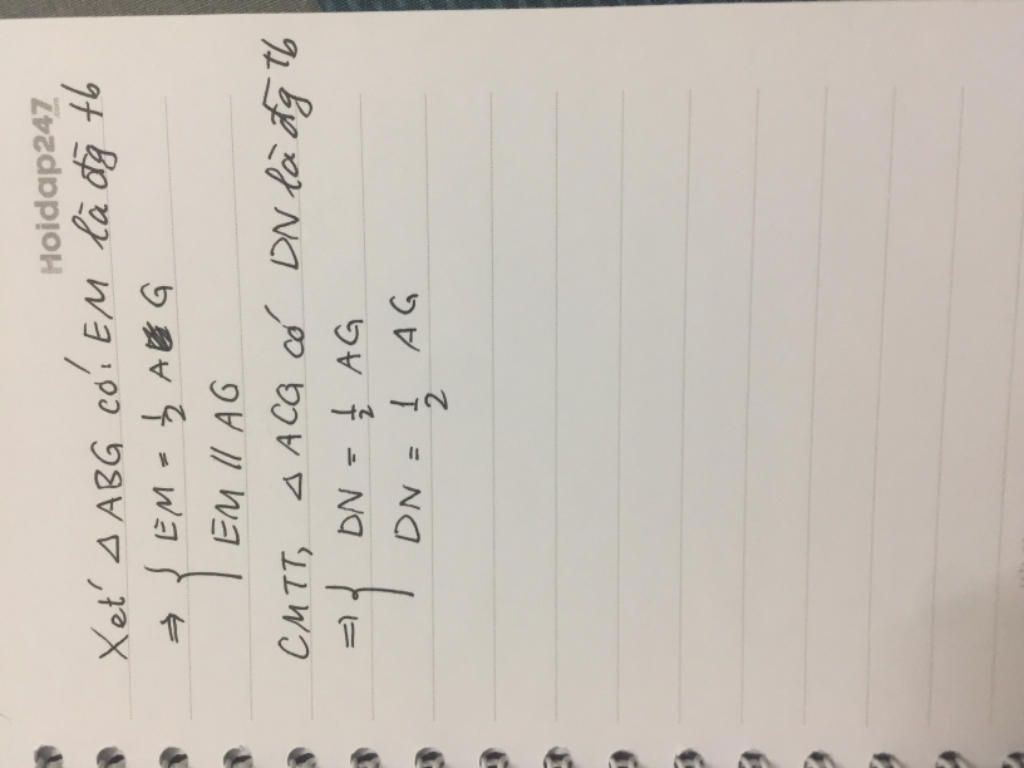 Hoidap247
.com
Xét ΔABG có: EM là đg tb
⇒ { EM = 1/2 AG
EM // AG
CMTT, ΔACG có DN là đg tb
⇒ { DN = 1/2 AG
DN = 1/2 AG